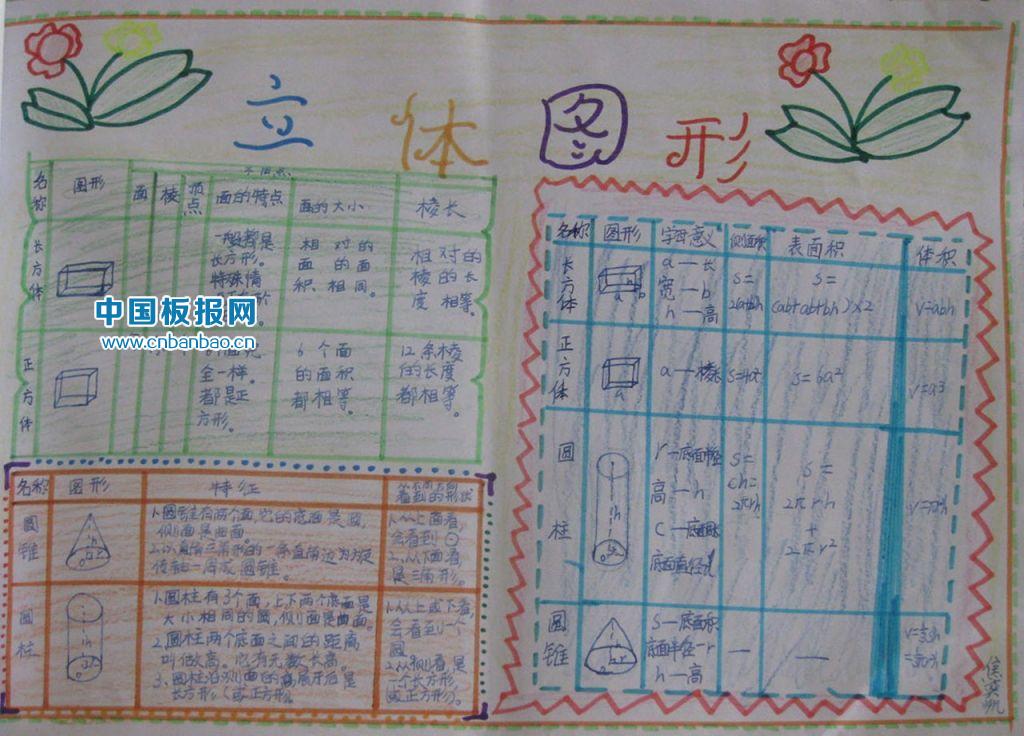 立体图形
名称 图形 面 棱 顶点 面的特点 面的大小 棱长
长方体
一般都是
长方形。
特殊情
相对的
面的面
积、相同。
相对的
棱的长
度相等。
正方体
全一样。
都是正
方形。
6个面
的面积
都相等。
12条棱
的长度
都相等。
中国板报网
www.cnbanbao.cn
名称 图形 特征 看到的形状
圆锥
h
r
1、圆锥有两个面,它的底面是圆,
侧面是曲面。
1、从上面看,
会看到○
2、从下面看,
是三角形。
圆柱
h
1、圆柱有3个面,上下两个底面是
大小相同的圆,侧面是曲面。
2、圆柱两个底面之间的距离
叫做高。它有无数长高。
3、圆柱沿侧面的高展开后是
长方形(或正方形)。
1、从上或下看,
会看到一个
圆
2、从侧看,是
一个长方形
(或正方形)。
名称 图形 字母意义 侧面积 表面积 体积
长方体
a b
a—长
宽—b
h—高
S=
2(ab+ab+bh)×2
V=abh
正方体
a
a—棱长
S=4a²
S=6a²
V=a³
圆柱
h
r—底面半径
高—h
C—底面周长
S=
ch=
2πrh
S=
2πrh
+
2πr²
圆锥
h r
S—底面积
底面半径—r
h—高
—
—